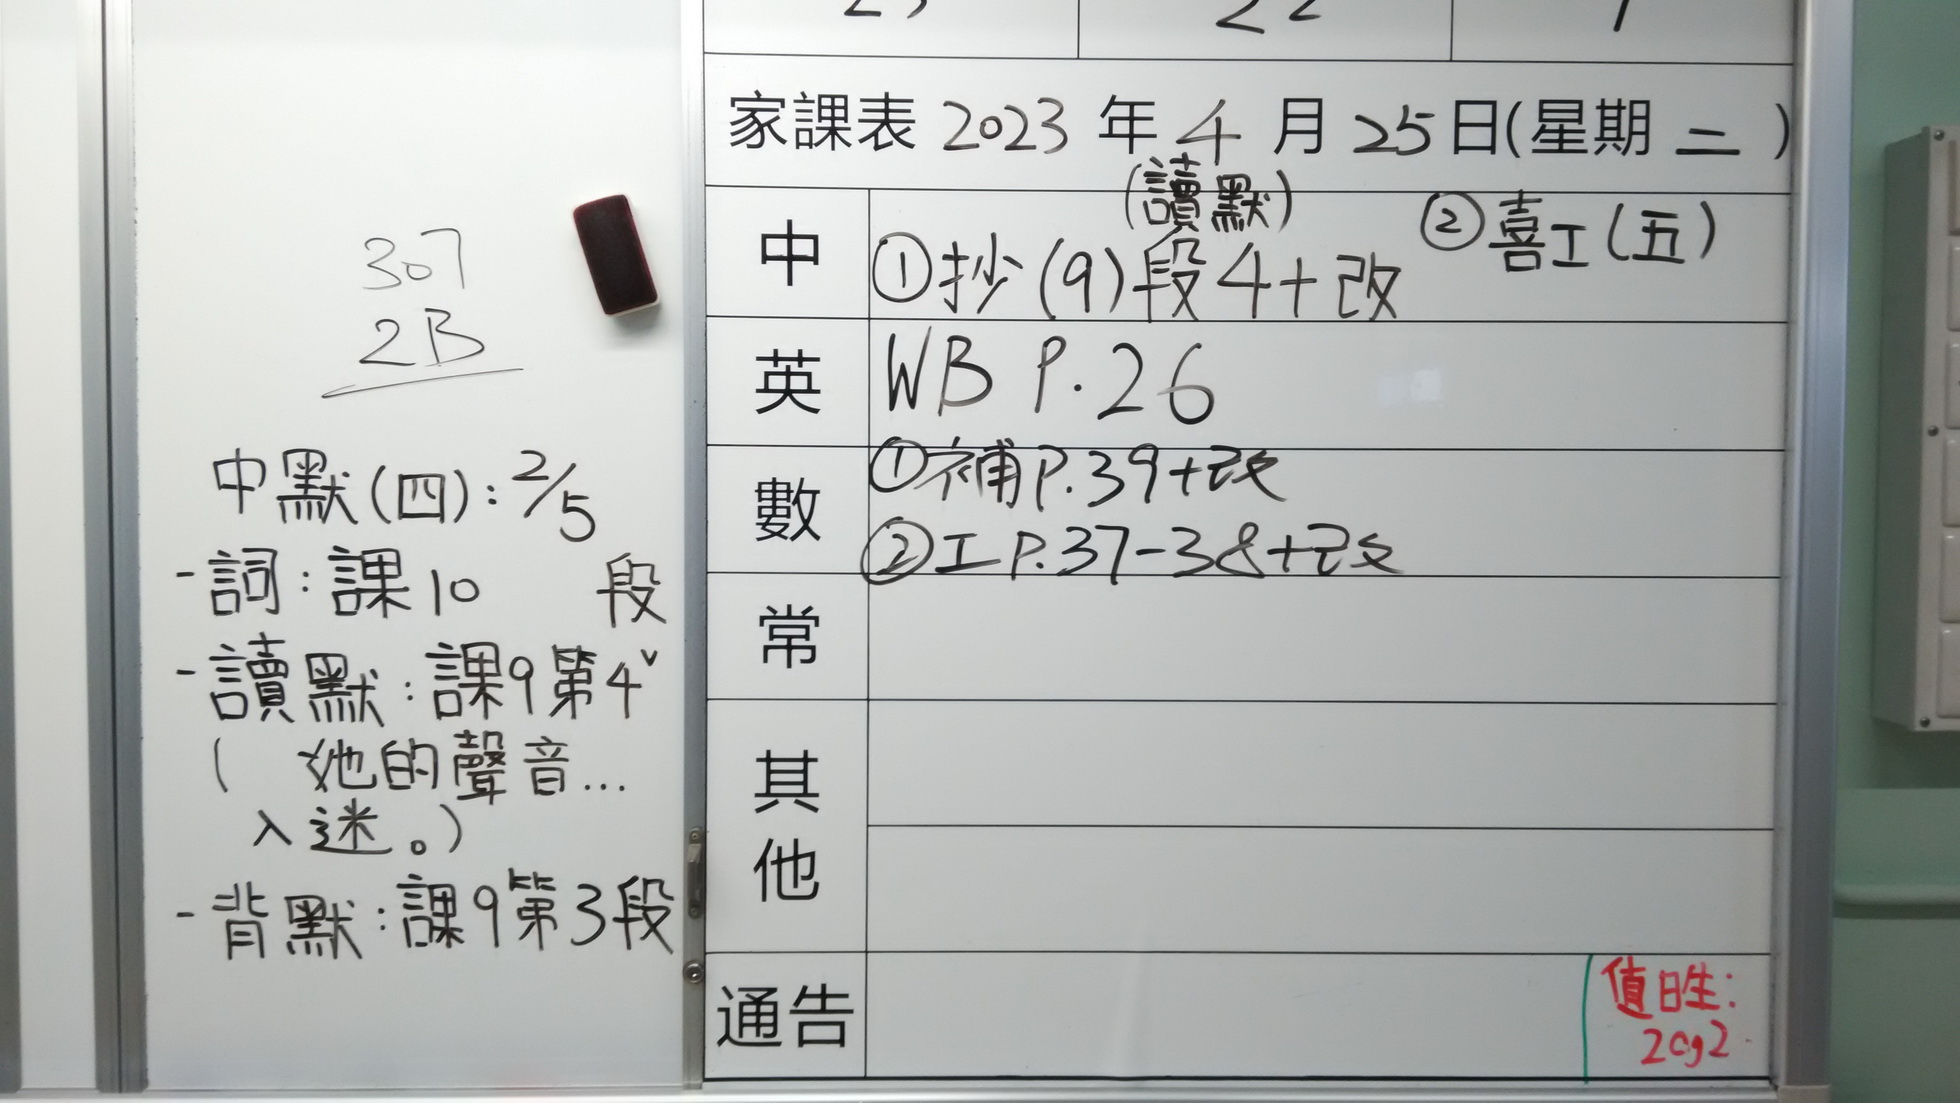 307
2B
中默(四): 2/5
- 詞: 課10
- 讀默: 課9第4段
( 她的聲音...
入迷。)
- 背默: 課9第3段
家課表 2023 年 4 月 25 日(星期 二 )
中
(讀默)
①抄(9)段4+改
②喜工(五)
英
WB P.26
數
①補P.39+改
②工P.37-38+改
常
其他
通告
值日生:
2&2